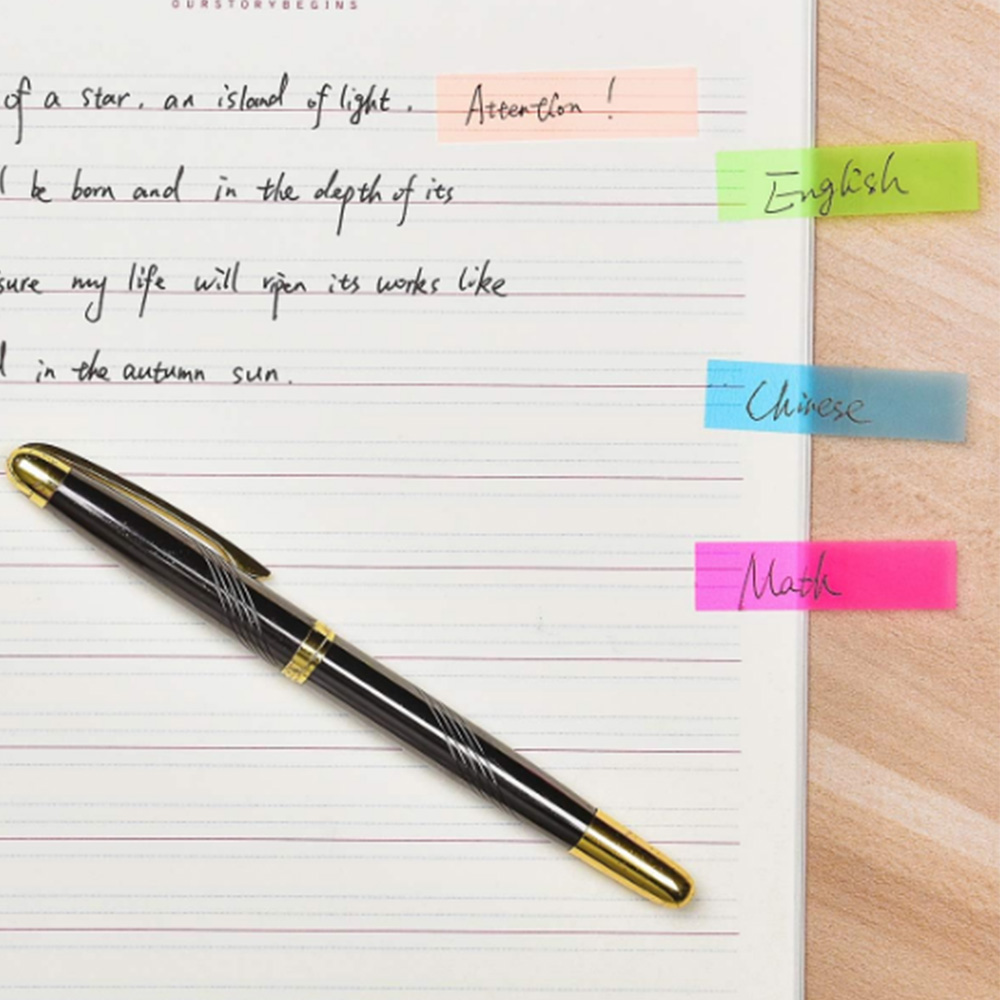 OURSTORYBEGINS
of a star. an island of light. Attention!
be born and in the depth of its
English
sure my life will ripen its works like
in the autumn sun.
Chinese
Math